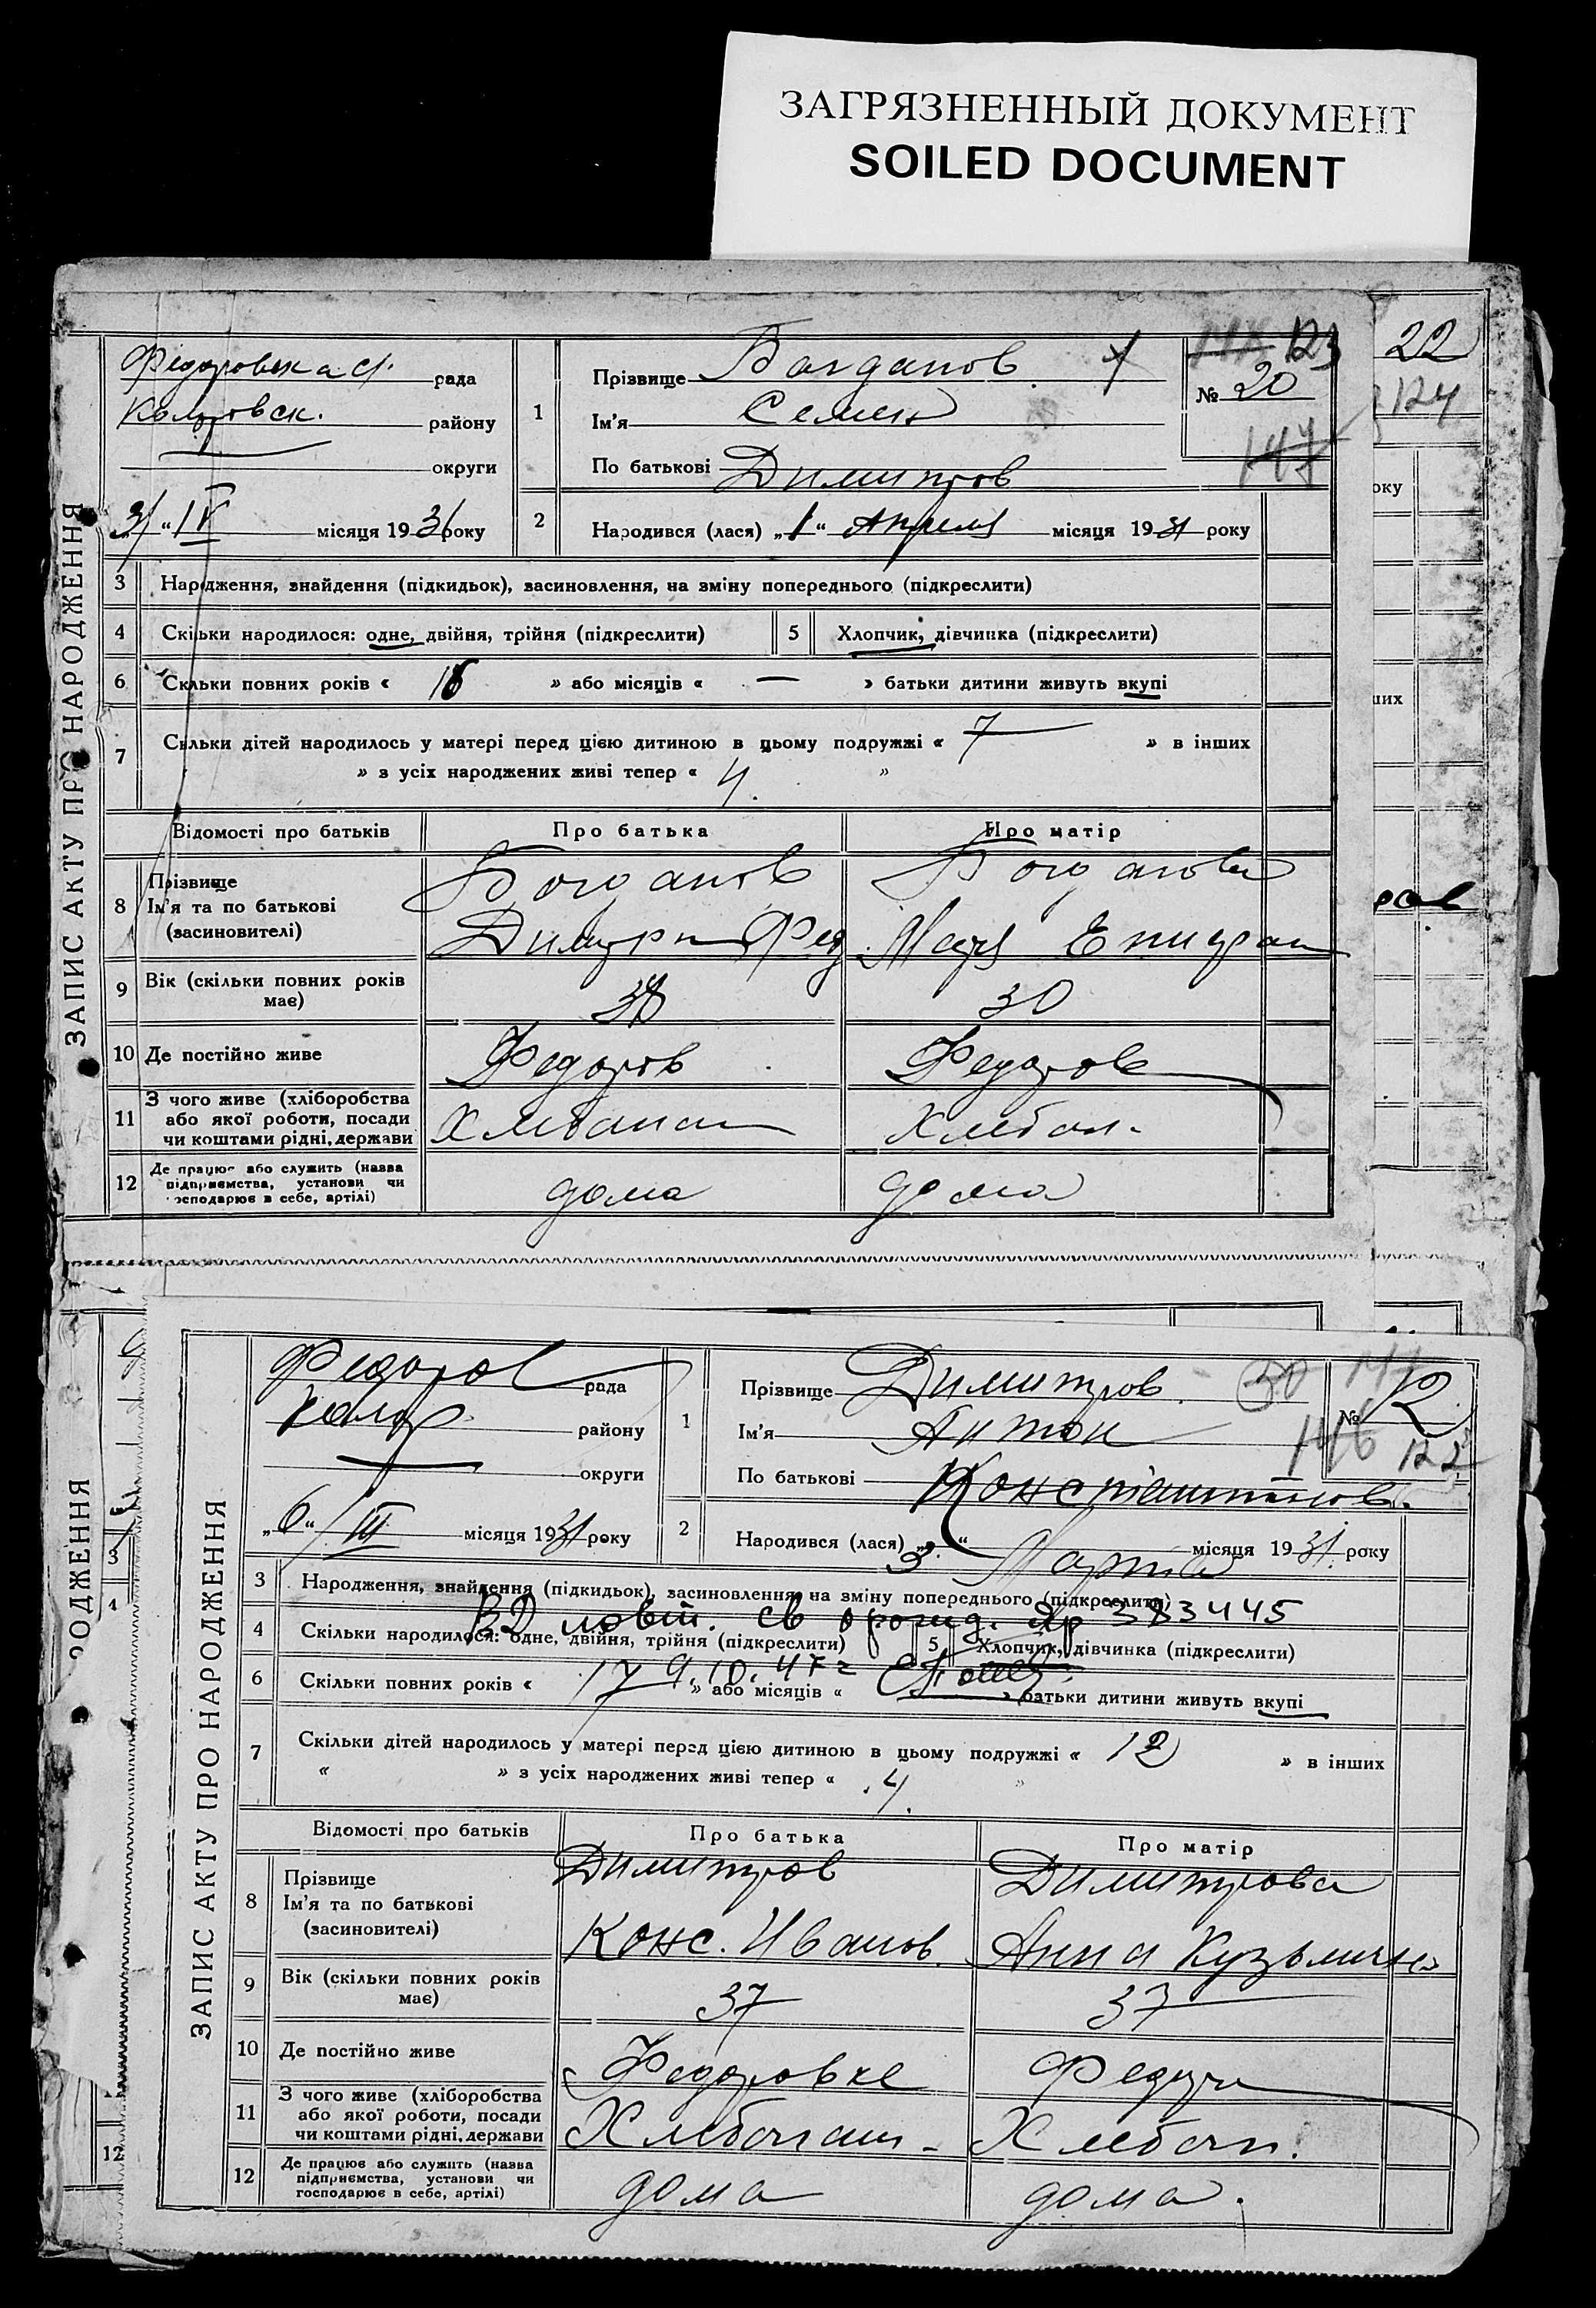 ЗАГРЯЗНЕННЫЙ ДОКУМЕНТ
SOILED DOCUMENT
22
124
оку
их
ров
ЗАПИС АКТУ ПРО НАРОДЖЕННЯ
рада
району
округи
"IV місяця 1931 року
1
Прізвище Богданов
Ім'я Семен
По батькові Димитров
123
№ 20
147
2
Народився (лася) „1“ Апреля місяця 1931 року
3 Народження, знайдення (підкидьок), засиновлення, на зміну попереднього (підкреслити)
4 Скільки народилося: одне, двійня, трійня (підкреслити) 5 Хлопчик, дівчинка (підкреслити)
6 Скільки повних років « » або місяців « — » батьки дитини живуть вкупі
7 Скільки дітей народилось у матері перед цією дитиною в цьому подружжі « 7 » в інших
» з усіх народжених живі тепер « 4. »
Відомості про батьків Про батька Про матір
8 Прізвище Ім'я та по батькові (засиновителі)
Богданов Богданова
9 Вік (скільки повних років має) 30
10 Де постійно живе Федоров Федоров
11 З чого живе (хліборобства або якої роботи, посади чи коштами рідні, держави
12 Де працює або служить (назва підприємства, установи чи господарює в себе, артілі) дома дома
РОДЖЕННЯ
3
4
12
ЗАПИС АКТУ ПРО НАРОДЖЕННЯ
Федоров рада
району
округи
„6“ III місяця 1931 року
1
Прізвище Димитров
Ім'я Антон
По батькові Константинов.
50
№ 12
146 122
2
Народився (лася) „3“ Марта місяця 1931 року
3 Народження, знайдення (підкидьок), засиновлення, на зміну попереднього (підкреслити)
383445
4 Скільки народилося: одне, двійня, трійня (підкреслити) 5 Хлопчик, дівчинка (підкреслити)
9.10.47г
6 Скільки повних років « 17 » або місяців « » батьки дитини живуть вкупі
7 Скільки дітей народилось у матері перед цією дитиною в цьому подружжі « 12 » в інших
« » з усіх народжених живі тепер « 4. »
Відомості про батьків Про батька Про матір
8 Прізвище Ім'я та по батькові (засиновителі)
Димитров Димитрова
Конс. Иванов. Анна
9 Вік (скільки повних років має) 37 37
10 Де постійно живе Федоровке
11 З чого живе (хліборобства або якої роботи, посади чи коштами рідні, держави
12 Де працює або служить (назва підприємства, установи чи господарює в себе, артілі) дома дома.